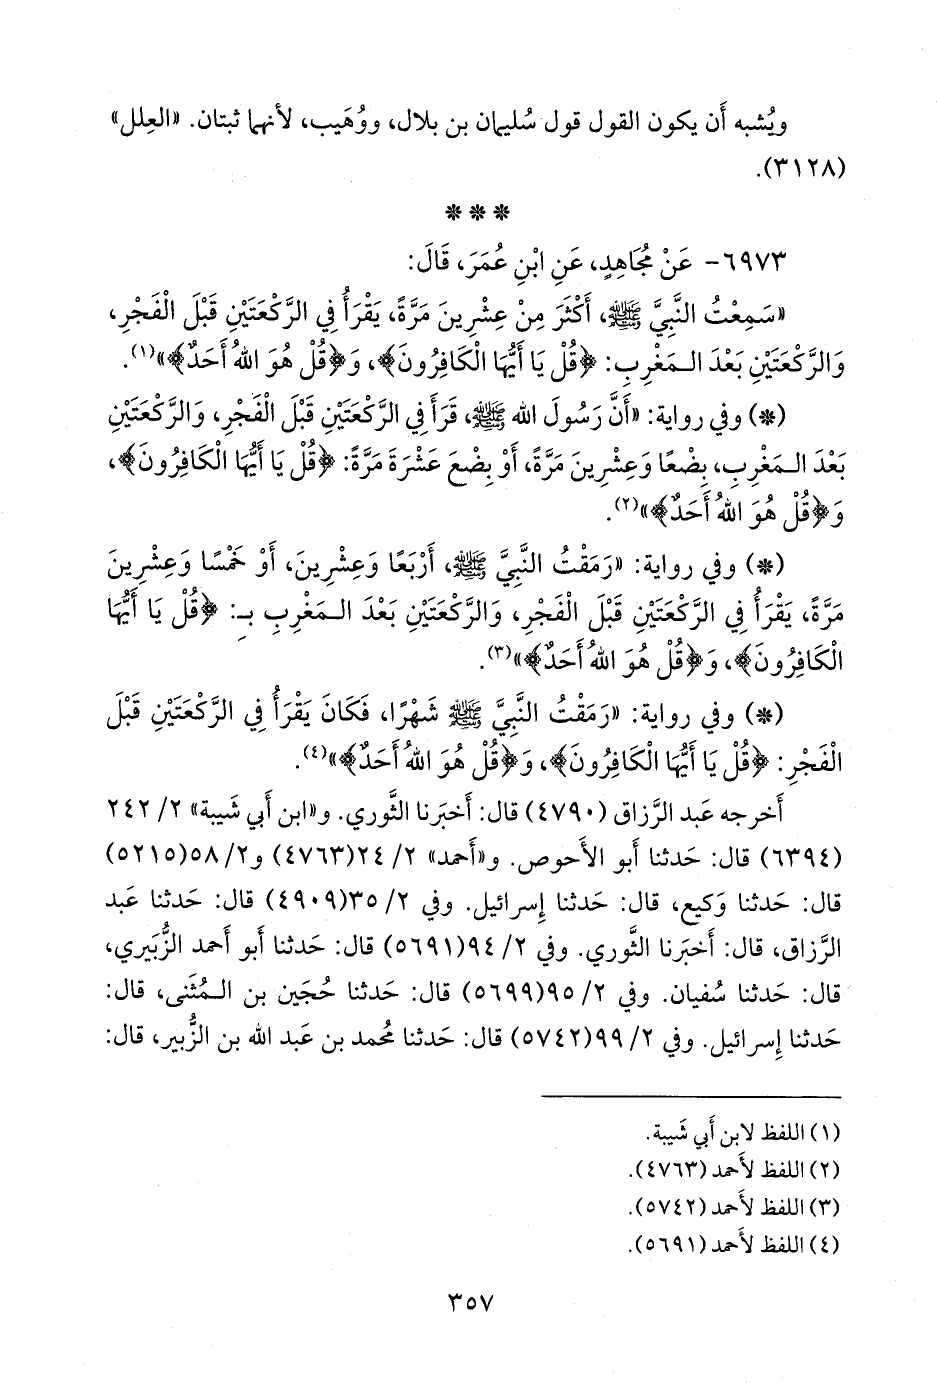 ويُشبه أَن يكون القول قول سُليمان بن بلال، ووُهَيب، لأنهما ثبتان. «العِلل»
(٣١٢٨).
* * *
٦٩٧٣- عَنْ مُجَاهِدٍ، عَنِ ابْنِ عُمَرَ، قَالَ:
«سَمِعْتُ النَّبِيَّ ﷺ، أَكْثَرَ مِنْ عِشْرِينَ مَرَّةً، يَقْرَأُ فِي الرَّكْعَتَيْنِ قَبْلَ الْفَجْرِ،
وَالرَّكْعَتَيْنِ بَعْدَ الـمَغْرِبِ: ﴿قُلْ يَا أَيُّهَا الْكَافِرُونَ﴾، وَ﴿قُلْ هُوَ اللهُ أَحَدٌ﴾»(١).
(*) وفي رواية: «أَنَّ رَسُولَ الله ﷺ، قَرَأَ فِي الرَّكْعَتَيْنِ قَبْلَ الْفَجْرِ، وَالرَّكْعَتَيْنِ
بَعْدَ الـمَغْرِبِ، بِضْعًا وَعِشْرِينَ مَرَّةً، أَوْ بِضْعَ عَشْرَةَ مَرَّةً: ﴿قُلْ يَا أَيُّهَا الْكَافِرُونَ﴾،
وَ﴿قُلْ هُوَ اللهُ أَحَدٌ﴾»(٢).
(*) وفي رواية: «رَمَقْتُ النَّبِيَّ ﷺ، أَرْبَعًا وَعِشْرِينَ، أَوْ خَمْسًا وَعِشْرِينَ
مَرَّةً، يَقْرَأُ فِي الرَّكْعَتَيْنِ قَبْلَ الْفَجْرِ، وَالرَّكْعَتَيْنِ بَعْدَ الـمَغْرِبِ بِـ: ﴿قُلْ يَا أَيُّهَا
الْكَافِرُونَ﴾، وَ﴿قُلْ هُوَ اللهُ أَحَدٌ﴾»(٣).
(*) وفي رواية: «رَمَقْتُ النَّبِيَّ ﷺ شَهْرًا، فَكَانَ يَقْرَأُ فِي الرَّكْعَتَيْنِ قَبْلَ
الْفَجْرِ: ﴿قُلْ يَا أَيُّهَا الْكَافِرُونَ﴾، وَ﴿قُلْ هُوَ اللهُ أَحَدٌ﴾»(٤).
أَخرجه عَبد الرَّزاق (٤٧٩٠) قال: أَخبَرنا الثَّوري. و«ابن أَبي شَيبة» ٢/ ٢٤٢
(٦٣٩٤) قال: حَدثنا أَبو الأَحوص. و«أَحمد» ٢/ ٢٤(٤٧٦٣) و٢/ ٥٨(٥٢١٥)
قال: حَدثنا وَكيع، قال: حَدثنا إِسرائيل. وفي ٢/ ٣٥(٤٩٠٩) قال: حَدثنا عَبد
الرَّزاق، قال: أَخبَرنا الثَّوري. وفي ٢/ ٩٤(٥٦٩١) قال: حَدثنا أَبو أَحمد الزُّبَيري،
قال: حَدثنا سُفيان. وفي ٢/ ٩٥(٥٦٩٩) قال: حَدثنا حُجَين بن الـمُثَنى، قال:
حَدثنا إِسرائيل. وفي ٢/ ٩٩(٥٧٤٢) قال: حَدثنا مُحمد بن عَبد الله بن الزُّبير، قال:
(١) اللفظ لابن أَبي شَيبة.
(٢) اللفظ لأَحمد (٤٧٦٣).
(٣) اللفظ لأَحمد (٥٧٤٢).
(٤) اللفظ لأَحمد (٥٦٩١).
٣٥٧